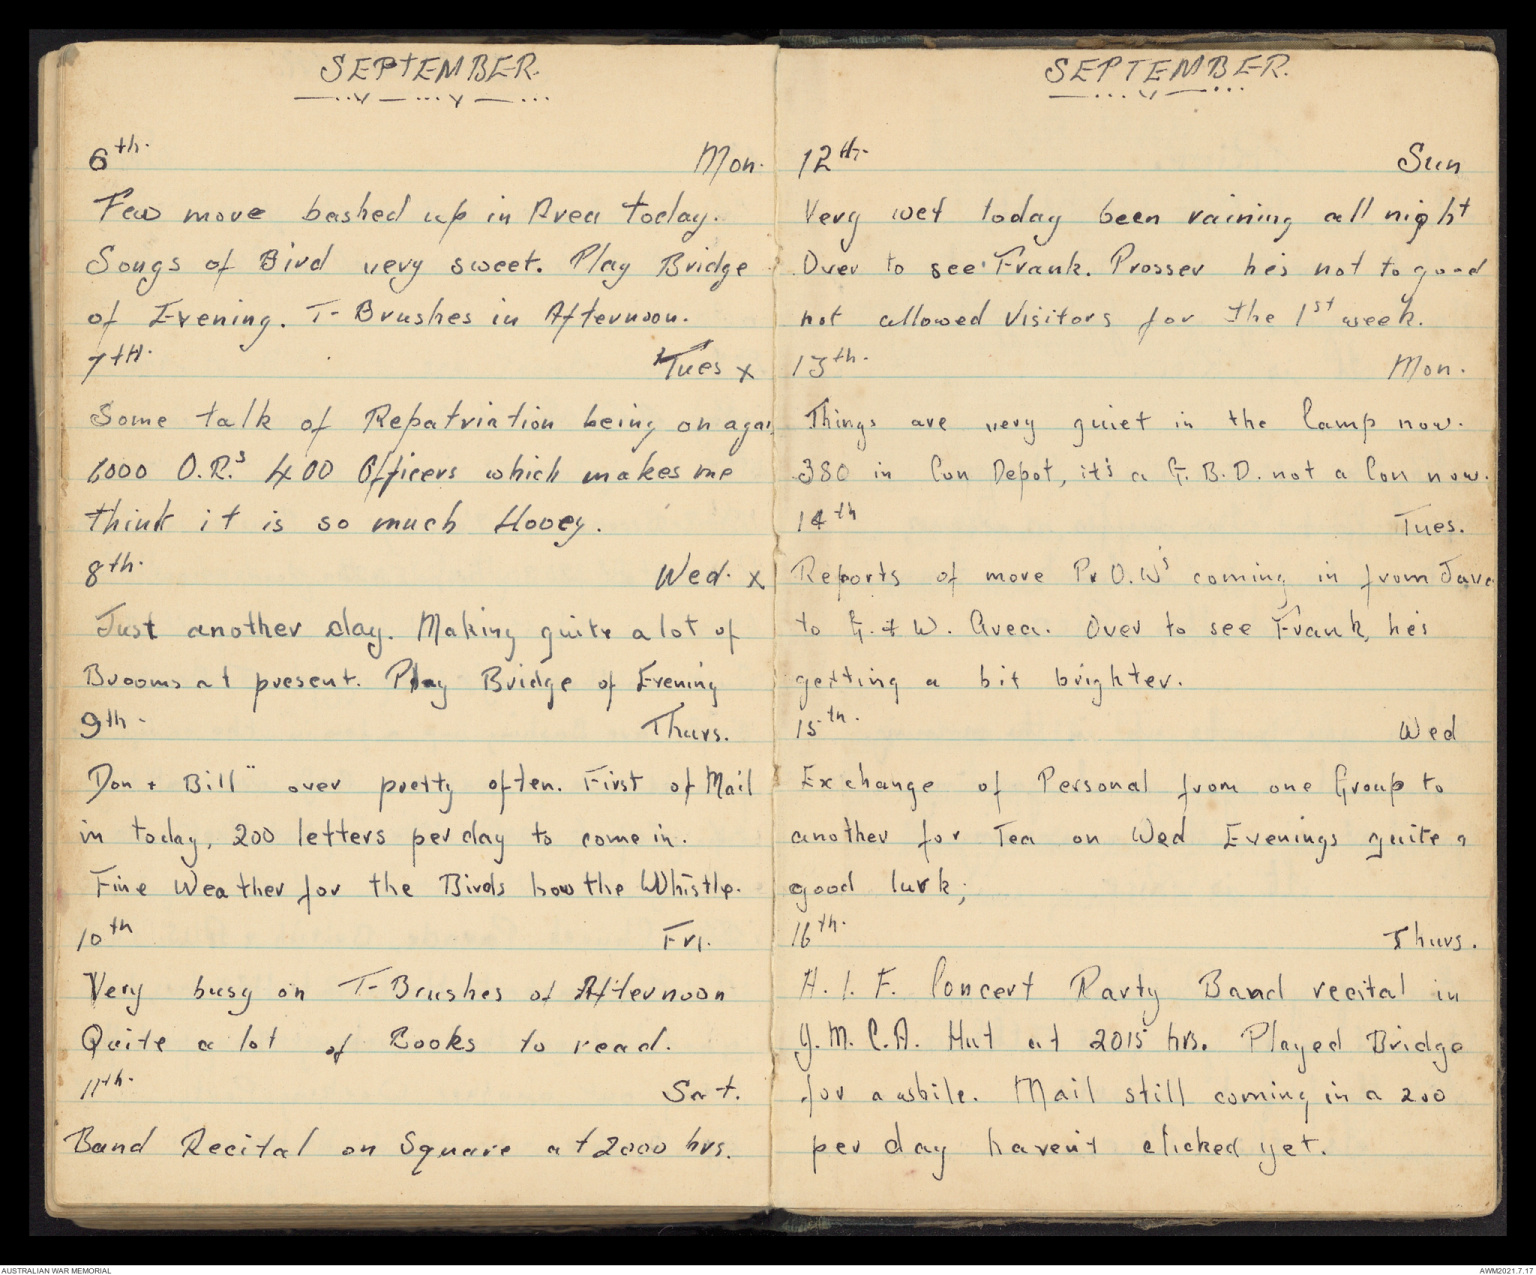 SEPTEMBER.
6th. Mon.
Few more bashed up in Area today.
Songs of Bird very sweet. Play Bridge
of Evening. T-Brushes in Afternoon.
7th. Tues x
Some talk of Repatriation being on again
6000 O.R.s 400 Officers which makes me
think it is so much Hooey.
8th. Wed. x
Just another day. Making quite a lot of
Brooms at present. Play Bridge of Evening
9th. Thurs.
Don + Bill" over pretty often. First of Mail
in today, 200 letters per day to come in.
Fine Weather for the Birds how the Whistle.
10th Fri.
Very busy on T-Brushes of Afternoon
Quite a lot of Books to read.
11th. Sat.
Band Recital on Square at 2000 hrs.
SEPTEMBER.
12th. Sun
Very wet today been raining all night
Over to see Frank. Prosser he's not to good
not allowed Visitors for the 1st week.
13th. Mon.
Things are very quiet in the Camp now.
380 in Con Depot, it's a G.B.D. not a Con now.
14th Tues.
Reports of more P. O.W's coming in from Java
to G. & W. Area. Over to see Frank, he's
getting a bit brighter.
15th. Wed
Exchange of Personal from one Group to
another for Tea on Wed Evenings quite a
good lurk;
16th. Thurs.
A. I. F. Concert Party Band recital in
Y.M.C.A. Hut at 2015 hrs. Played Bridge
for awhile. Mail still coming in a 200
per day haven't clicked yet.
AUSTRALIAN WAR MEMORIAL
AWM2021.7.17